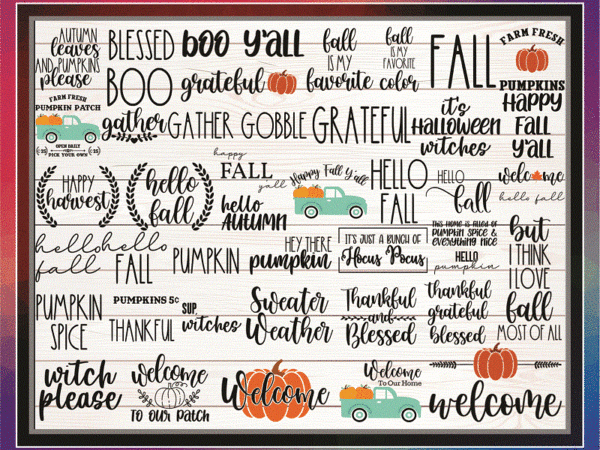 AUTUMN
leaves
AND PUMPKINS
please
BLESSED
boo y'all
fall
IS MY
favorite
fall
IS MY
FAVORITE
color
FALL
FARM FRESH
PUMPKINS
BOO
grateful
FARM FRESH
PUMPKIN PATCH
OPEN DAILY
PICK YOUR OWN
gather
GATHER
GOBBLE
GRATEFUL
it's
HALLOWEEN
witches
HAPPY
FALL
Y'ALL
HAPPY
harvest
hello
fall
happy
FALL
y'all
hello
AUTUMN
Happy Fall Y'all
HELLO
FALL
HELLO
fall
welcome
hello fall
hello
fall
hello
FALL
PUMPKIN
HEY THERE
pumpkin
IT'S JUST A BUNCH OF
Hocus Pocus
THIS HOME IS FILLED OF
PUMPKIN SPICE &
EVERYTHING NICE
HELLO
pumpkin
but
I THINK
I LOVE
fall
MOST OF ALL
PUMPKIN
SPICE
PUMPKINS 5¢
THANKFUL
SUP
witches
Sweater
Weather
Thankful
and
Blessed
thankful
grateful
blessed
witch
please
welcome
TO OUR PATCH
Welcome
Welcome
To Our Home
welcome